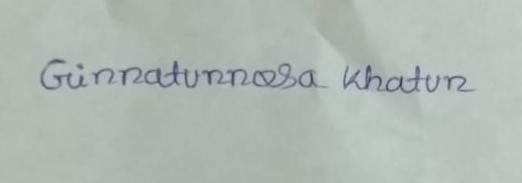 Gunnatunnesa Khatun